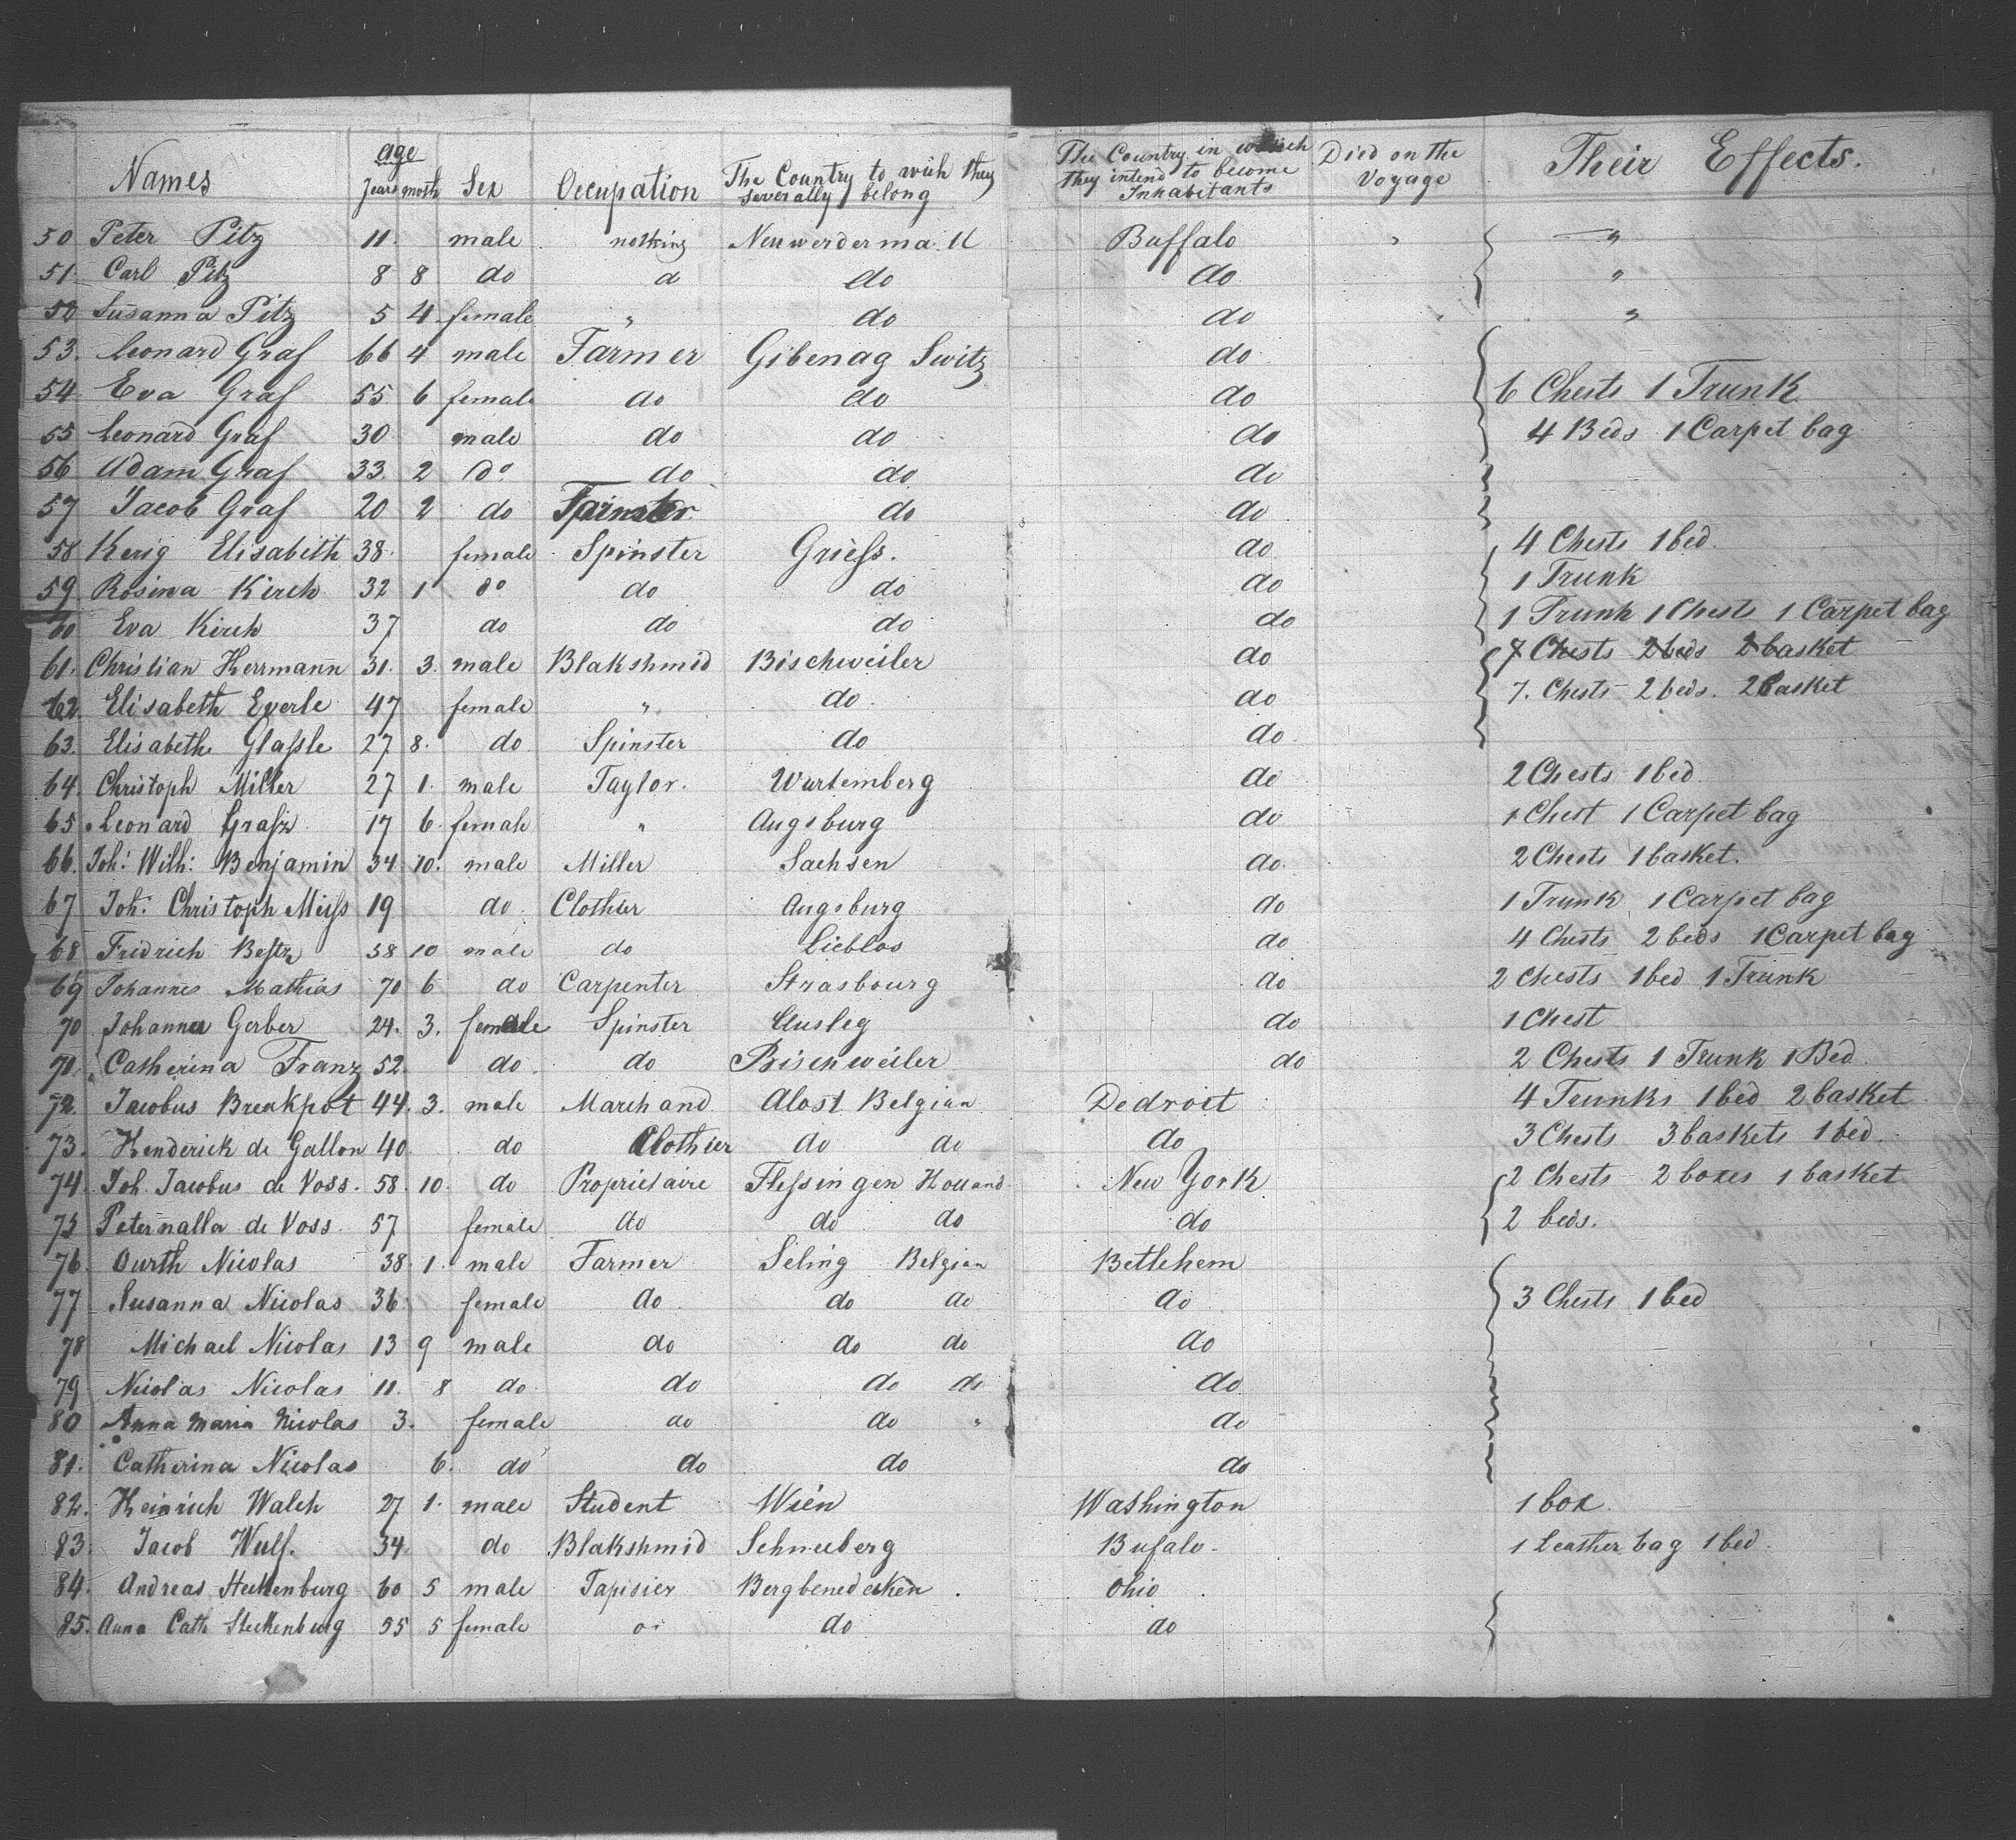 Names age Years moth Sex Occupation The Country to wich they severally belong The Country in which they intend to become Inhabitants Died on the Voyage Their Effects.
50 Peter Pitz 11. male nothing Neuwerderma Buffalo "
51. Carl Pitz 8 8 do do do "
52 Susanna Pitz 5 4 female " do do "
53. Leonard Graf 66 4 male Farmer Gibenag Switz do
54 Eva Graf 55 6 female do do do 6 Chests 1 Trunk
55 Leonard Graf 30 male do do do 4 Beds 1 Carpet bag
56 Adam Graf 33. 2 do do do do
57 Jacob Graf 20 2 do do do
58 Kerig Elisabeth 38. female Spinster Griess. do 4 Chests 1 bed.
59 Rosina Kirch 32 1 do do do do 1 Trunk
60 Eva Kirch 37 do do do do 1 Trunk 1 Chest 1 Carpet bag
61. Christian Herrmann 31. 3. male Blakshmid Bischweiler do 7 Chests 2 beds 2 basket
62 Elisabeth Everle 47 female " do do 7. Chests 2 beds. 2 basket
63. Elisabeth Glassle 27 8. do Spinster do do.
64. Christoph Miller 27 1. male Taylor. Wurtemberg do 2 Chests 1 bed
65 Leonard 17 6. female " Augsburg do 1 Chest 1 Carpet bag
66. Joh: Wilh: Benjamin 34. 10. male Miller Sachsen do. 2 Chests 1 basket.
67 Joh: Christoph Meiss 19 do. Clothier Augsburg do 1 Trunk 1 Carpet bag
68 Fridrich 38 10 male do Lieblos do 4 Chests 2 beds 1 Carpet bag
69 Johannes Mathias 70 6 do Carpenter Strasbourg do 2 Chests 1 bed 1 Trunk
70 Johanna Gerber 24. 3. female Spinster Ausleg do 1 Chest
71. Catherina Franz 52. do. do Bischweiler do 2 Chests 1 Trunk 1 Bed
72. Jacobus Breakpot 44. 3. male Marchand Alost Belgian Dedroit 4 Trunks 1 bed 2 basket
73. Henderick de Gallon 40 do Clothier do do do 3 Chests 3 baskets 1 bed.
74. Joh. Jacobus de Voss. 58. 10. do Proprietaire Flessingen Holland New York 2 Chests 2 boxes 1 basket
75 Peternalla de Voss. 57 female do do do do 2 beds.
76. Ourth Nicolas 38. 1. male Farmer Seling Belgian Betlehem
77 Susanna Nicolas 36. female do do do do 3 Chests 1 bed
78 Michael Nicolas 13 9 male do do do do
79 Nicolas Nicolas 11. 8 do do do do do
80 Anna Maria Nicolas 3. female do do " do
81. Catherina Nicolas 6. do do do do
82. Heinrich Walch 27 1. male Student Wién Washington 1 box.
83. Jacob Wulf. 34. do Blakshmid Schneeberg Bufalo. 1 Leather bag 1 bed.
84. Andreas Steckenburg 60 5 male Tapisier Ohio
85. Anna Cath Steckenburg 55 5 female do do